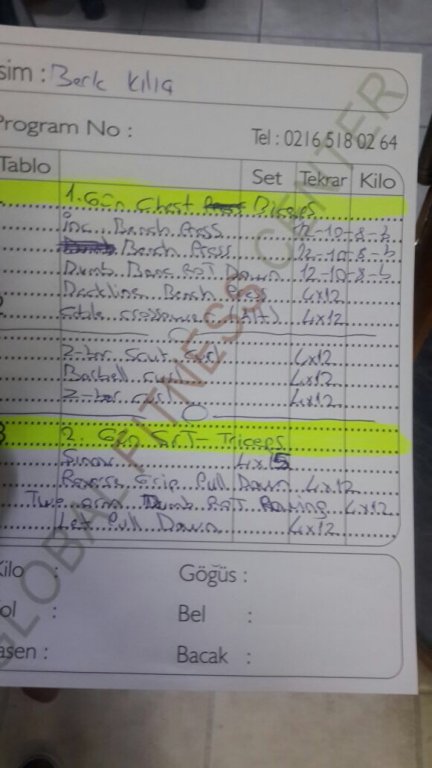 sim : Berk Kılıç
Program No :
Tel : 0216 518 02 64
Tablo Set Tekrar Kilo
1. Gün Chest
inc. Bench Press 12-10-8-6
Bench Press 12-10-8-6
Dumb. 12-10-8-6
Deckline Bench Press 4x12
Cable 4x12
Z-bar Scut curl 4x12
Barbell curl 4x12
Z-bar curl 4x12
2. Gün Sırt- Triceps
4x15
Reverse Grip Pull Down 4x12
Two arm Dumb. Rowing 4x12
Let Pull Down 4x12
Kilo :
Göğüs :
ol :
Bel :
asen :
Bacak :
GLOBAL FITNESS CENTER